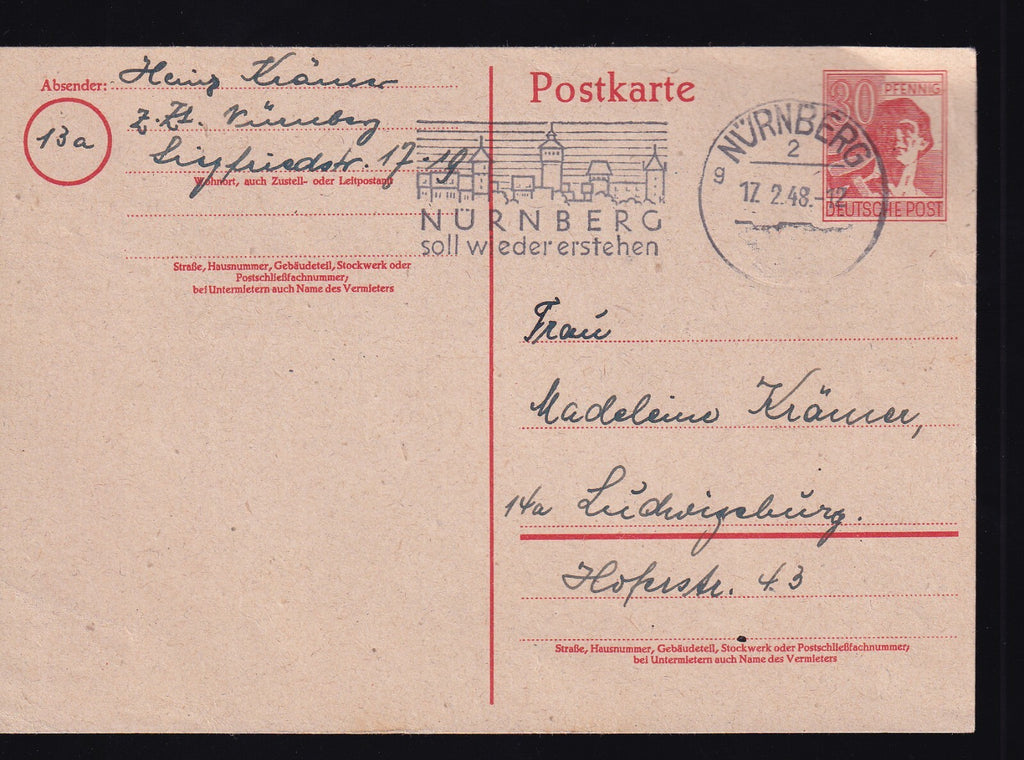 Absender: Heinz Krämer
13a
z.Zt. Nürnberg
Siegfriedstr. 17-19
Wohnort, auch Zustell- oder Leitpostamt
Straße, Hausnummer, Gebäudeteil, Stockwerk oder
Postschließfachnummer;
bei Untermietern auch Name des Vermieters
NÜRNBERG
soll wieder erstehen
Postkarte
NÜRNBERG
2
g 17. 2.48.-12
30 PFENNIG
DEUTSCHE POST
Frau
Madeleine Krämer,
14a Ludwigsburg.
Hoferstr. 43
Straße, Hausnummer, Gebäudeteil, Stockwerk oder Postschließfachnummer;
bei Untermietern auch Name des Vermieters